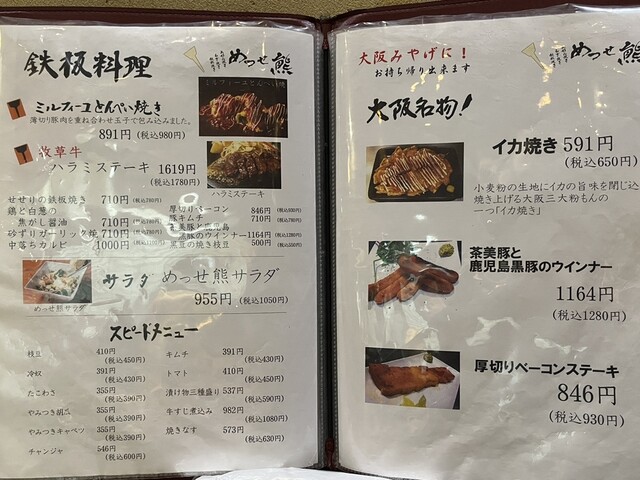 鉄板料理
めっせ熊
ミルフィーユとんぺい焼き
薄切り豚肉を重ね合わせ玉子で包み込みました。
891円 (税込980円)
ミルフィーユとんぺい焼
牧草牛
ハラミステーキ 1619円
(税込1780円)
ハラミステーキ
せせりの鉄板焼き 710円 (税込780円)
鶏と白葱の
焦がし醤油 710円 (税込780円)
砂ずりガーリック焼 710円 (税込780円)
中落ちカルビ 1000円 (税込1100円)
厚切りベーコン 846円 (税込930円)
豚キムチ 710円 (税込780円)
茶美豚と鹿児島
黒豚のウインナー 1164円 (税込1280円)
黒豆の焼き枝豆 500円 (税込550円)
サラダ めっせ熊サラダ
955円 (税込1050円)
めっせ熊サラダ
スピードメニュー
枝豆 410円 (税込450円)
冷奴 391円 (税込430円)
たこわさ 355円 (税込390円)
やみつき胡瓜 355円 (税込390円)
やみつきキャベツ 355円 (税込390円)
チャンジャ 546円 (税込600円)
キムチ 391円 (税込430円)
トマト 410円 (税込450円)
漬け物三種盛り 537円 (税込590円)
牛すじ煮込み 982円 (税込1080円)
焼きなす 573円 (税込630円)
大阪みやげに!
お持ち帰り出来ます
めっせ熊
大阪名物!
イカ焼き 591円
(税込650円)
小麦粉の生地にイカの旨味を閉じ込め
焼き上げる大阪三大粉もんの
一つ「イカ焼き」
茶美豚と
鹿児島黒豚のウインナー
1164円
(税込1280円)
厚切りベーコンステーキ
846円
(税込930円)